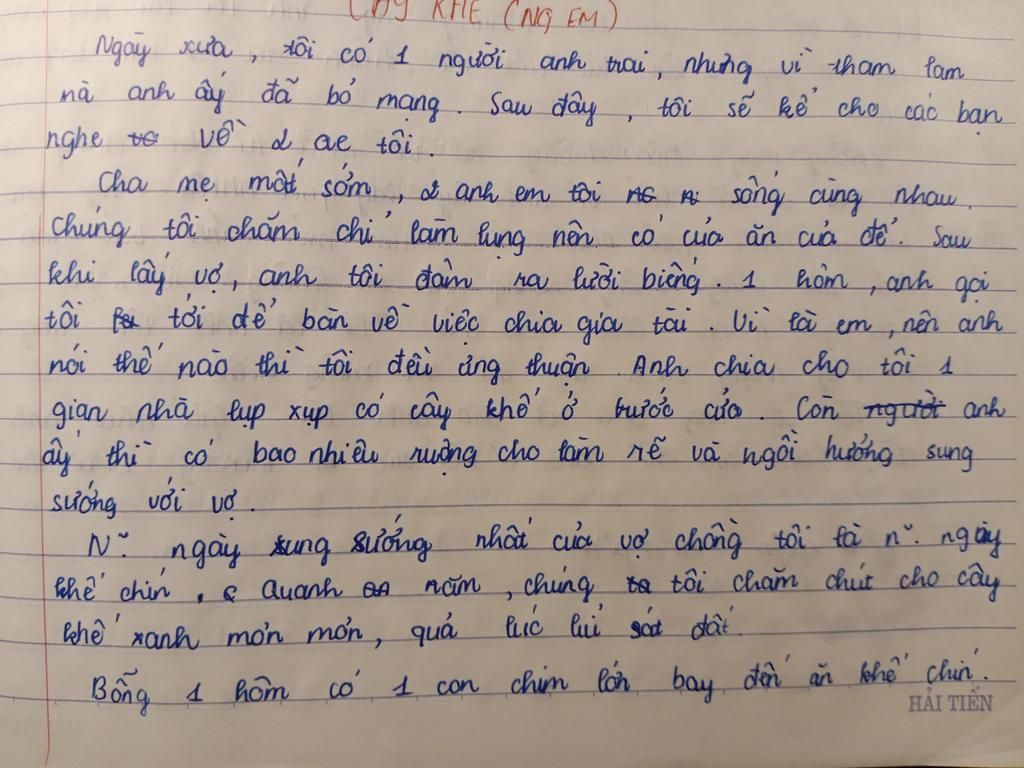 CÂY KHẾ (NG EM)
Ngày xưa, tôi có 1 người anh trai, nhưng vì tham lam
mà anh ấy đã bỏ mạng. Sau đây, tôi sẽ kể cho các bạn
nghe về 2 ae tôi.
Cha mẹ mất sớm, 2 anh em tôi sống cùng nhau.
Chúng tôi chăm chỉ làm lụng nên có của ăn của để. Sau
khi lấy vợ, anh tôi đâm ra lười biếng. 1 hôm, anh gọi
tôi tới để bàn về việc chia gia tài. Vì là em, nên anh
nói thế nào thì tôi đều ưng thuận. Anh chia cho tôi 1
gian nhà lụp xụp có cây khế ở trước cửa. Còn anh
ấy thì có bao nhiêu ruộng cho làm rẽ và ngồi hưởng sung
sướng với vợ.
N~. ngày sung sướng nhất của vợ chồng tôi là n~. ngày
khế chín. Quanh năm, chúng tôi chăm chút cho cây
khế xanh mơn mởn, quả lúc lỉu sát đất.
Bỗng 1 hôm có 1 con chim lớn bay đến ăn khế chín.
HẢI TIẾN